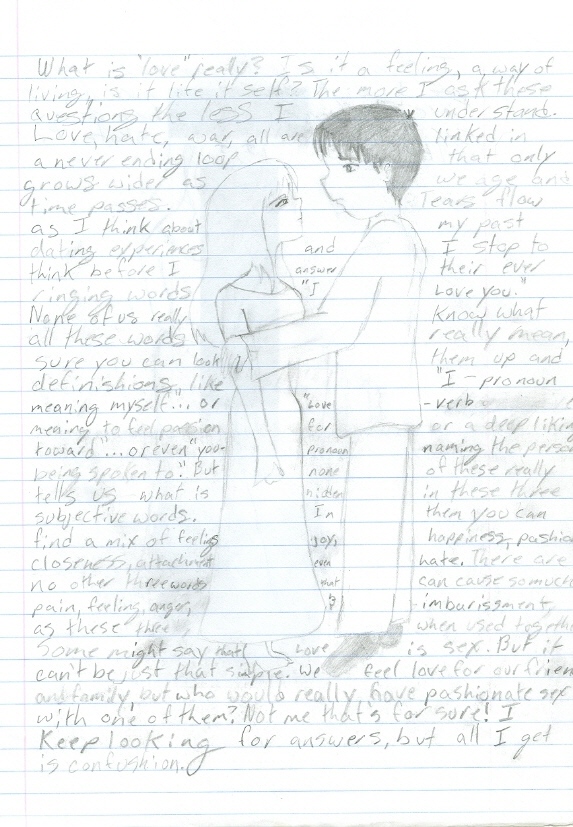 What is "love" really? Is it a feeling, a way of
living, is it life it self? The more I ask these
questions the less I understand.
Love, hate, war, all are linked in
a never ending loop that only
grows wider as we age and
time passes. Tears flow
as I think about my past
dating experinces and I stop to
think before I answer their ever
ringing words "I Love you."
None of us really Know what
all these words really mean,
sure you can look them up and
definishions, like "I - pronoun
meaning myself"... or "Love - verb
meaning to feel passion for or a deep liking
toward"... or even "you- pronoun naming the person
being spoken to." But none of these really
tells us what is hidden in these three
subjective words. In them you can
find a mix of feelings joy, happiness, pashio
closeness, attachment even hate. There are
no other three words that can cause so much
pain, feeling, anger, & imburissment,
as these three when used togethe
Some might say that Love is sex. But it
can't be just that simple. We feel love for our frien
and family, but who would really have pashionate sex
with one of them? Not me that's for sure! I
Keep looking for answers, but all I get
is confushion.